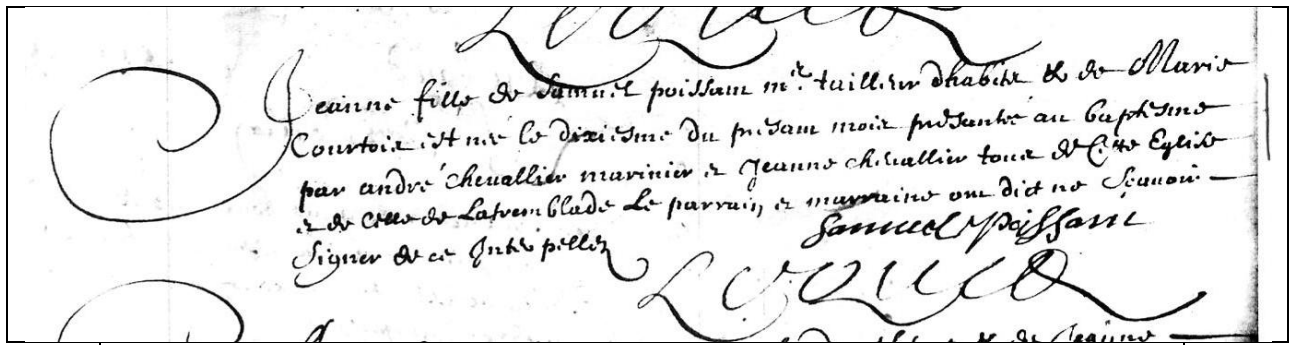 Jeanne fille de Samuel poissant mre. tailleur dhabits & de Marie
Courtois est née le dixiesme du presant mois presanteé au baptesme
par andré chevallier marinier et Jeanne chevallier tous de Cste Eglise
et de celle de Latremblade Le parrain et marraine ont dict ne Scavoir
Signer de ce Interpellez
Samuel Poissant